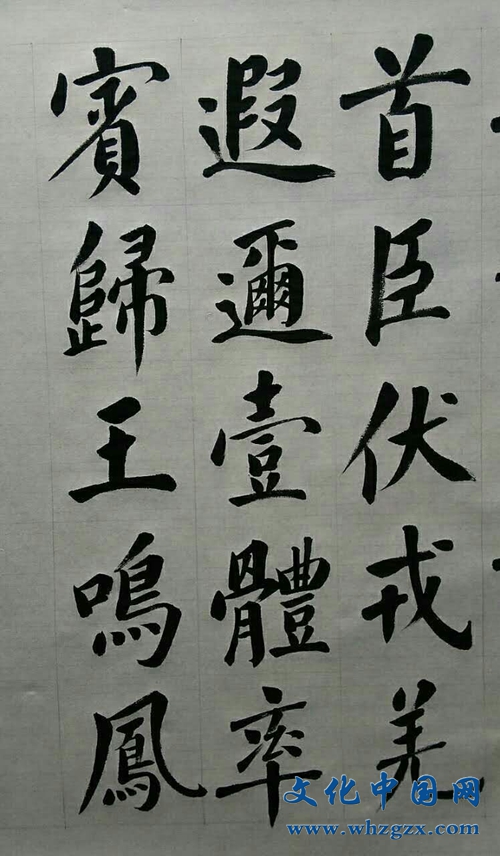 首臣伏戎羌
遐邇壹體率
賓歸王鳴鳳
文化中国网
www.whzgzx.com